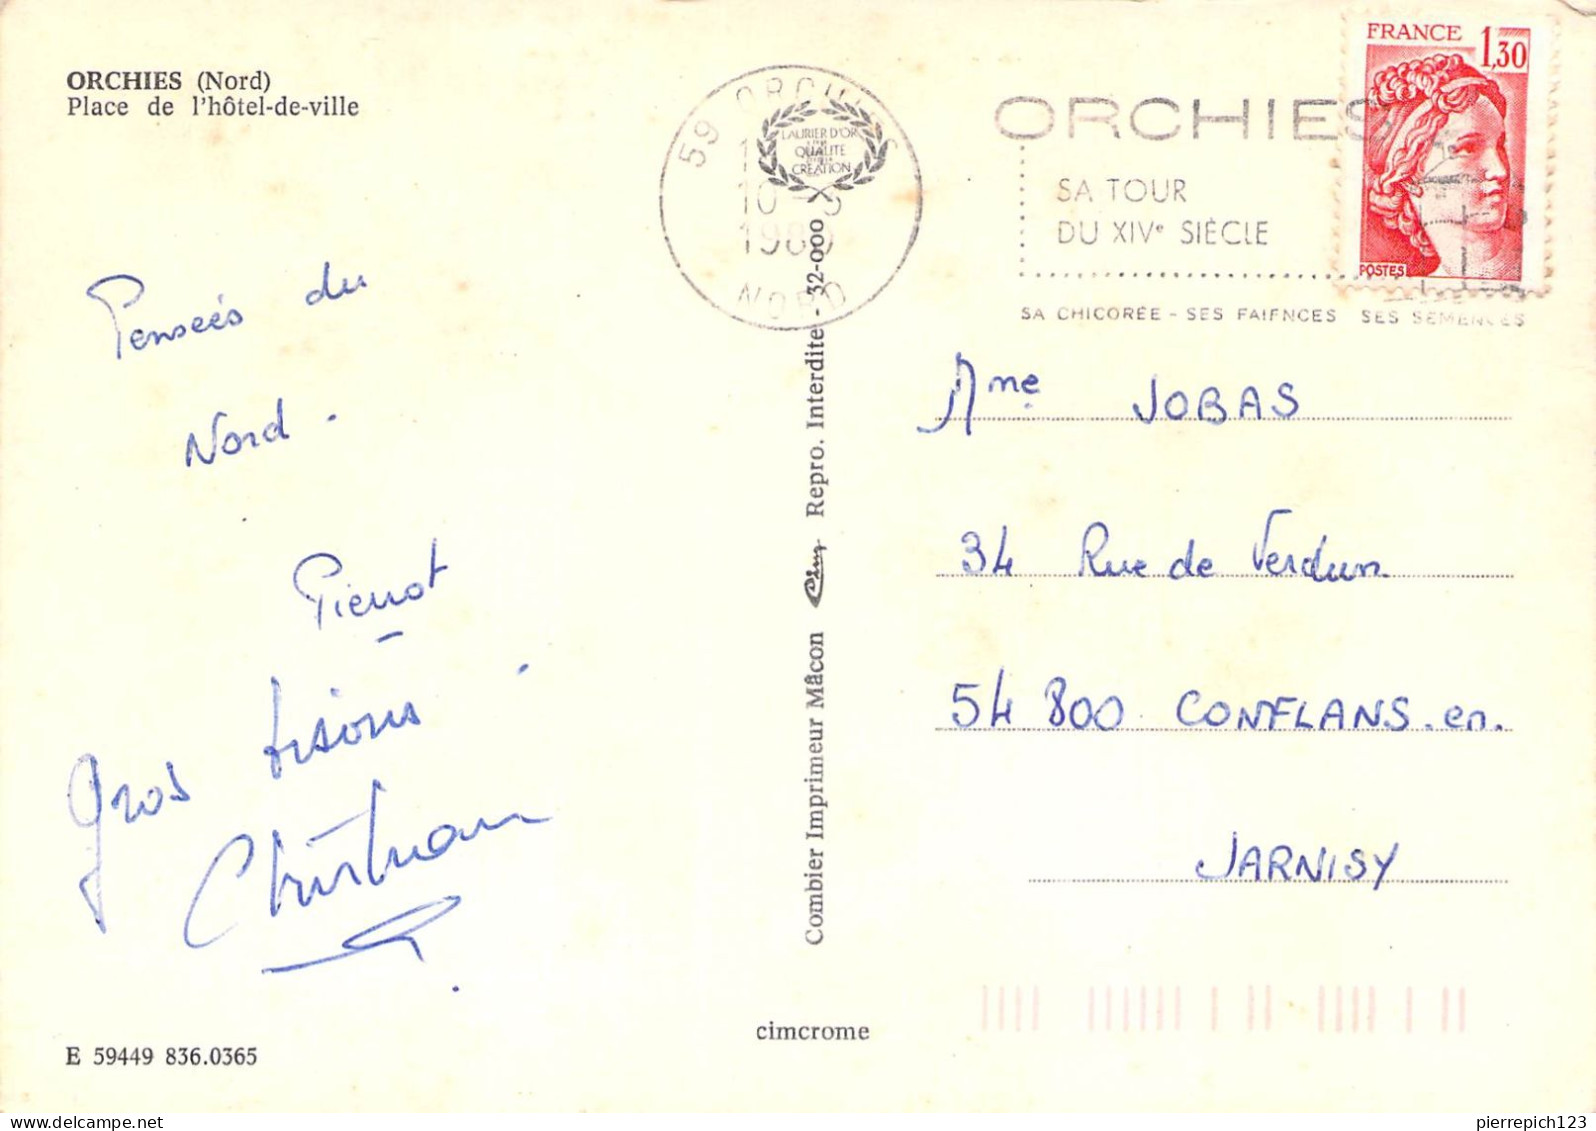 ORCHIES (Nord)
Place de l'hôtel-de-ville
59 ORCHIES
10-
1980
NORD
LAURIER D'OR
QUALITÉ
CRÉATION
ORCHIES
SA TOUR
DU XIVe SIÈCLE
SA CHICORÉE - SES FAIENCES SES SEMENCES
FRANCE 1,30
POSTES
Pensées du
Nord.
Pierrot
Gros bisous
Christian
Mme JOBAS
34 Rue de Verdun
54 800 CONFLANS.en.
JARNISY
Combier Imprimeur Mâcon Cim Repro. Interdite - 32-000
cimcrome
E 59449 836.0365
pierrepich123